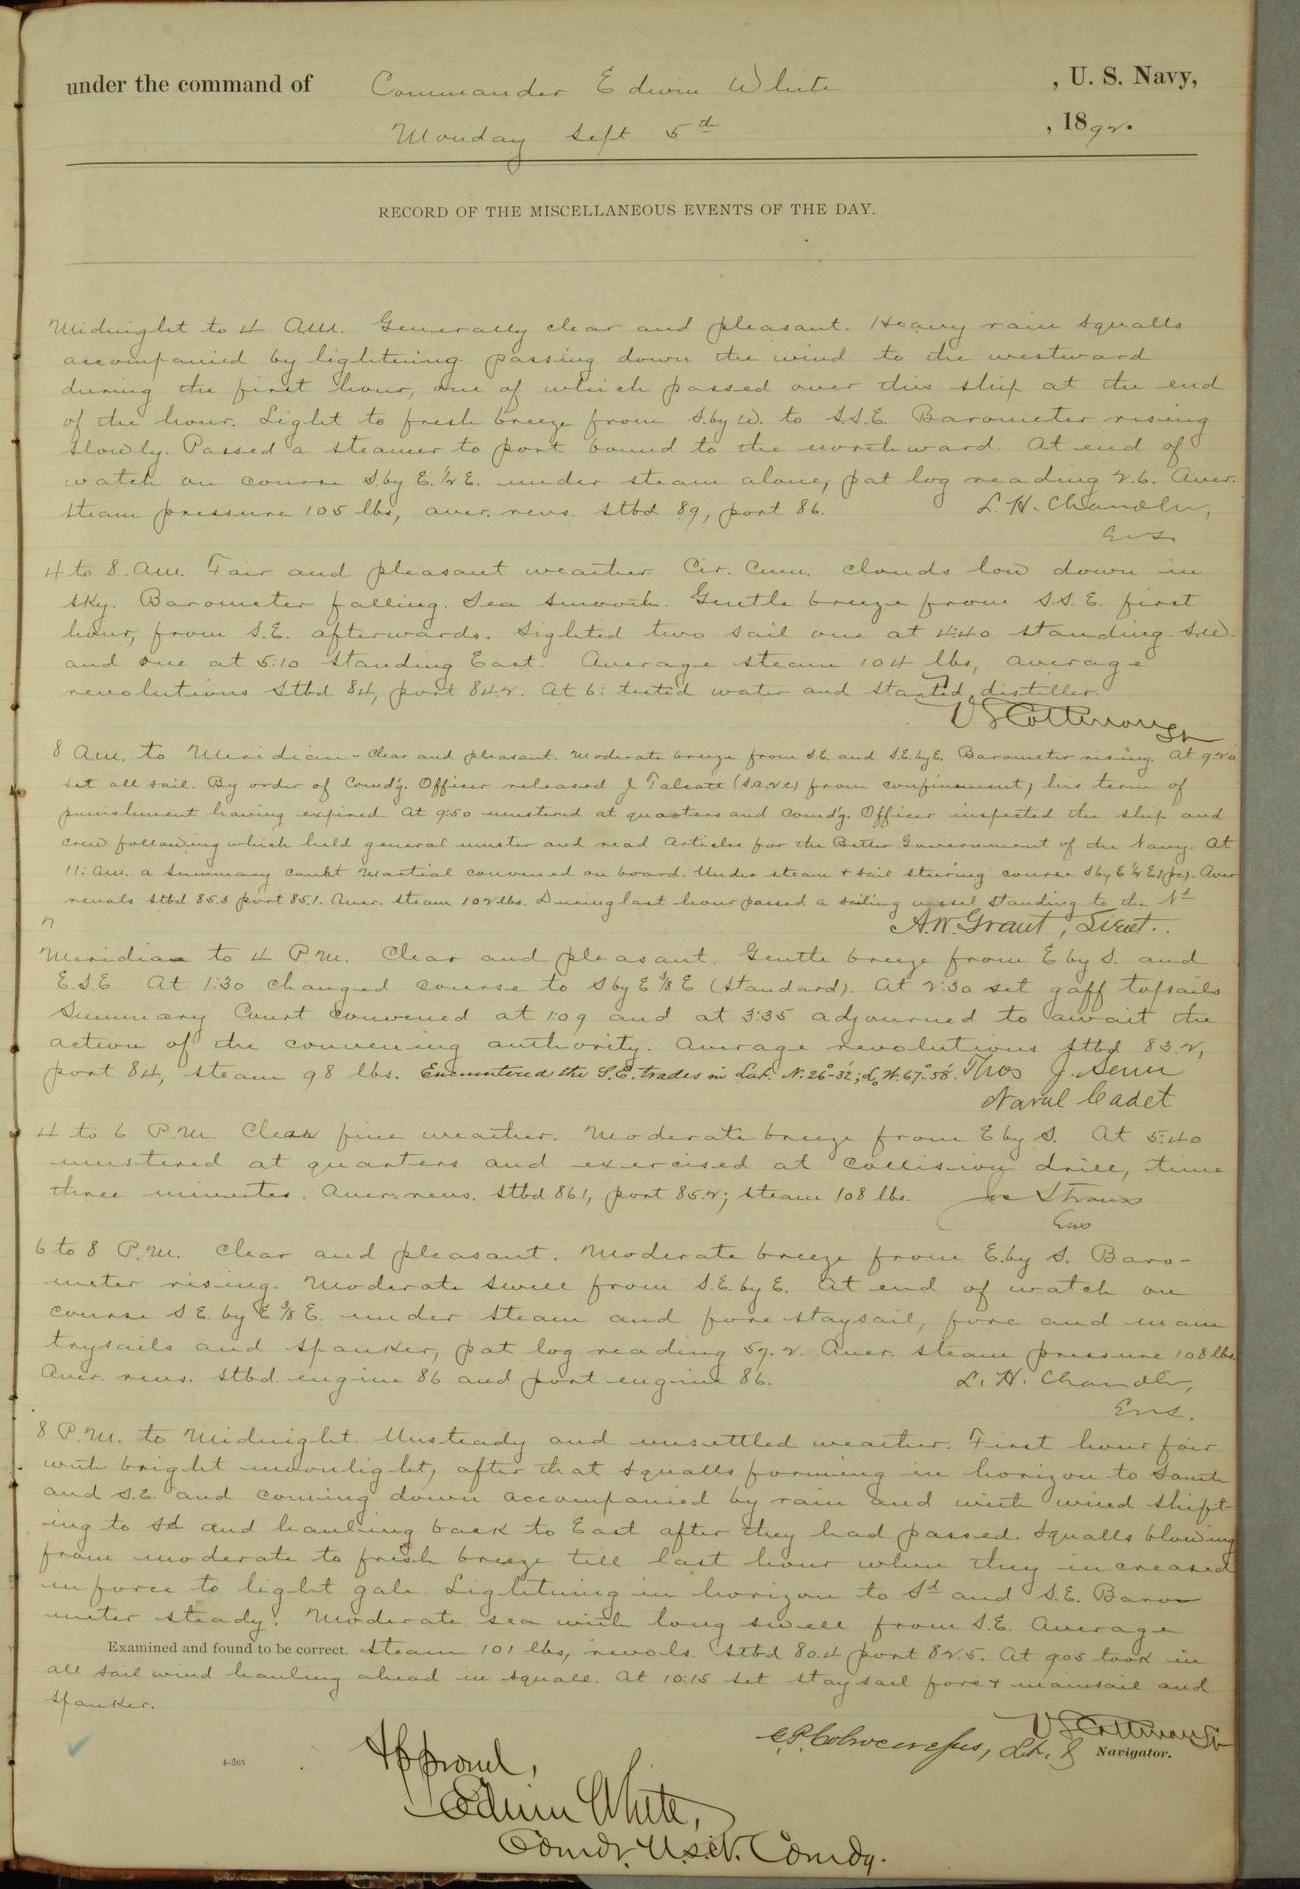 under the command of Commander Edwin White , U. S. Navy,
Monday Sept 5th , 1892.
RECORD OF THE MISCELLANEOUS EVENTS OF THE DAY.
Midnight to 4 A.M. Generally clear and pleasant. Heavy rain squalls
accompanied by lightning passing down the wind to the westward
during the first hour, one of which passed over this ship at the end
of the hour. Light to fresh breeze from S. by W. to S.S.E. Barometer rising
slowly. Passed a steamer to port bound to the northward. At end of
watch on course S. by E. 1/2 E. under steam alone, pat log reading 2.6. Aver.
steam pressure 105 lbs, aver. revs. stbd 89, port 86. L. H. Chandler,
Ens.
4 to 8 A.M. Fair and pleasant weather Cir. Cum. clouds low down in
sky. Barometer falling. Sea smooth. Gentle breeze from S.S.E. first
hour, from S.E. afterwards. Sighted two sail one at 4:40 standing S.W.
and one at 5:10 standing East. Average steam 104 lbs, average
revolutions Stbd 84, port 84.2. At 6: tested water and started distiller.
8 A.M. to Meridian - Clear and pleasant. Moderate breeze from S.E. and S.E. by E. Barometer rising. At 9:20
set all sail. By order of Comd'g. Officer released J Talcott from confinement, his term of
punishment having expired. At 9:50 mustered at quarters and Comd'g. Officer inspected the ship and
crew following which held general muster and read Articles for the Better Government of the Navy. At
11: A.M. a Summary Court Martial convened on board. Under steam & sail steering course S by E 1/2 E (pc). Aver
revols stbd 85.3 port 85.1. Aver. steam 102 lbs. During last hour passed a sailing vessel standing to the Nd
A.W. Grant, Lieut.
Meridian to 4 P.M. Clear and pleasant. Gentle breeze from E by S. and
E.S.E. At 1:30 changed course to S by E 3/8 E (Standard). At 2:30 set gaff topsails
Summary Court convened at 1:09 and at 3:35 adjourned to await the
action of the convening authority. Average revolutions stbd 83.2,
port 84, steam 98 lbs. Encountered the S.E. trades in Lat. N. 26°-32'; Lo W. 67°-58'. Thos J. Senn
Naval Cadet
4 to 6 P.M. Clear fine weather. Moderate breeze from E by S. At 5:40
mustered at quarters and exercised at collision drill, time
three minutes. Aver. revs. stbd 86.1, port 85.2; steam 108 lbs. Jos Strauss
Ens
6 to 8 P.M. Clear and pleasant. Moderate breeze from E. by S. Baro-
meter rising. Moderate swell from S.E. by E. At end of watch on
course S E. by E 3/8 E. under steam and fore staysail, fore and main
trysails and spanker, pat log reading 59.2. Aver. steam pressure 108 lbs.
Aver. revs. stbd. engine 86 and port engine 86. L. H. Chandler,
Ens.
8 P.M. to Midnight. Unsteady and unsettled weather. First hour fair
with bright moonlight, after that squalls forming in horizon to South
and S.E. and coming down accompanied by rain and with wind shift-
ing to Sd and hauling back to East after they had passed. Squalls blowing
from moderate to fresh breeze till last hour when they increased
in force to light gale. Lightning in horizon to Sd and S.E. Baro-
meter steady. Moderate sea with long swell from S.E. Average
Examined and found to be correct. steam 101 lbs, revols. stbd 80.4 port 82.5. At 9:05 took in
all sail wind hauling ahead in squall. At 10:15 set staysail fore & mainsail and
spanker.
Navigator.
4-265
Approved,
Edwin White,
Comdr. U.S.N. Comdg.